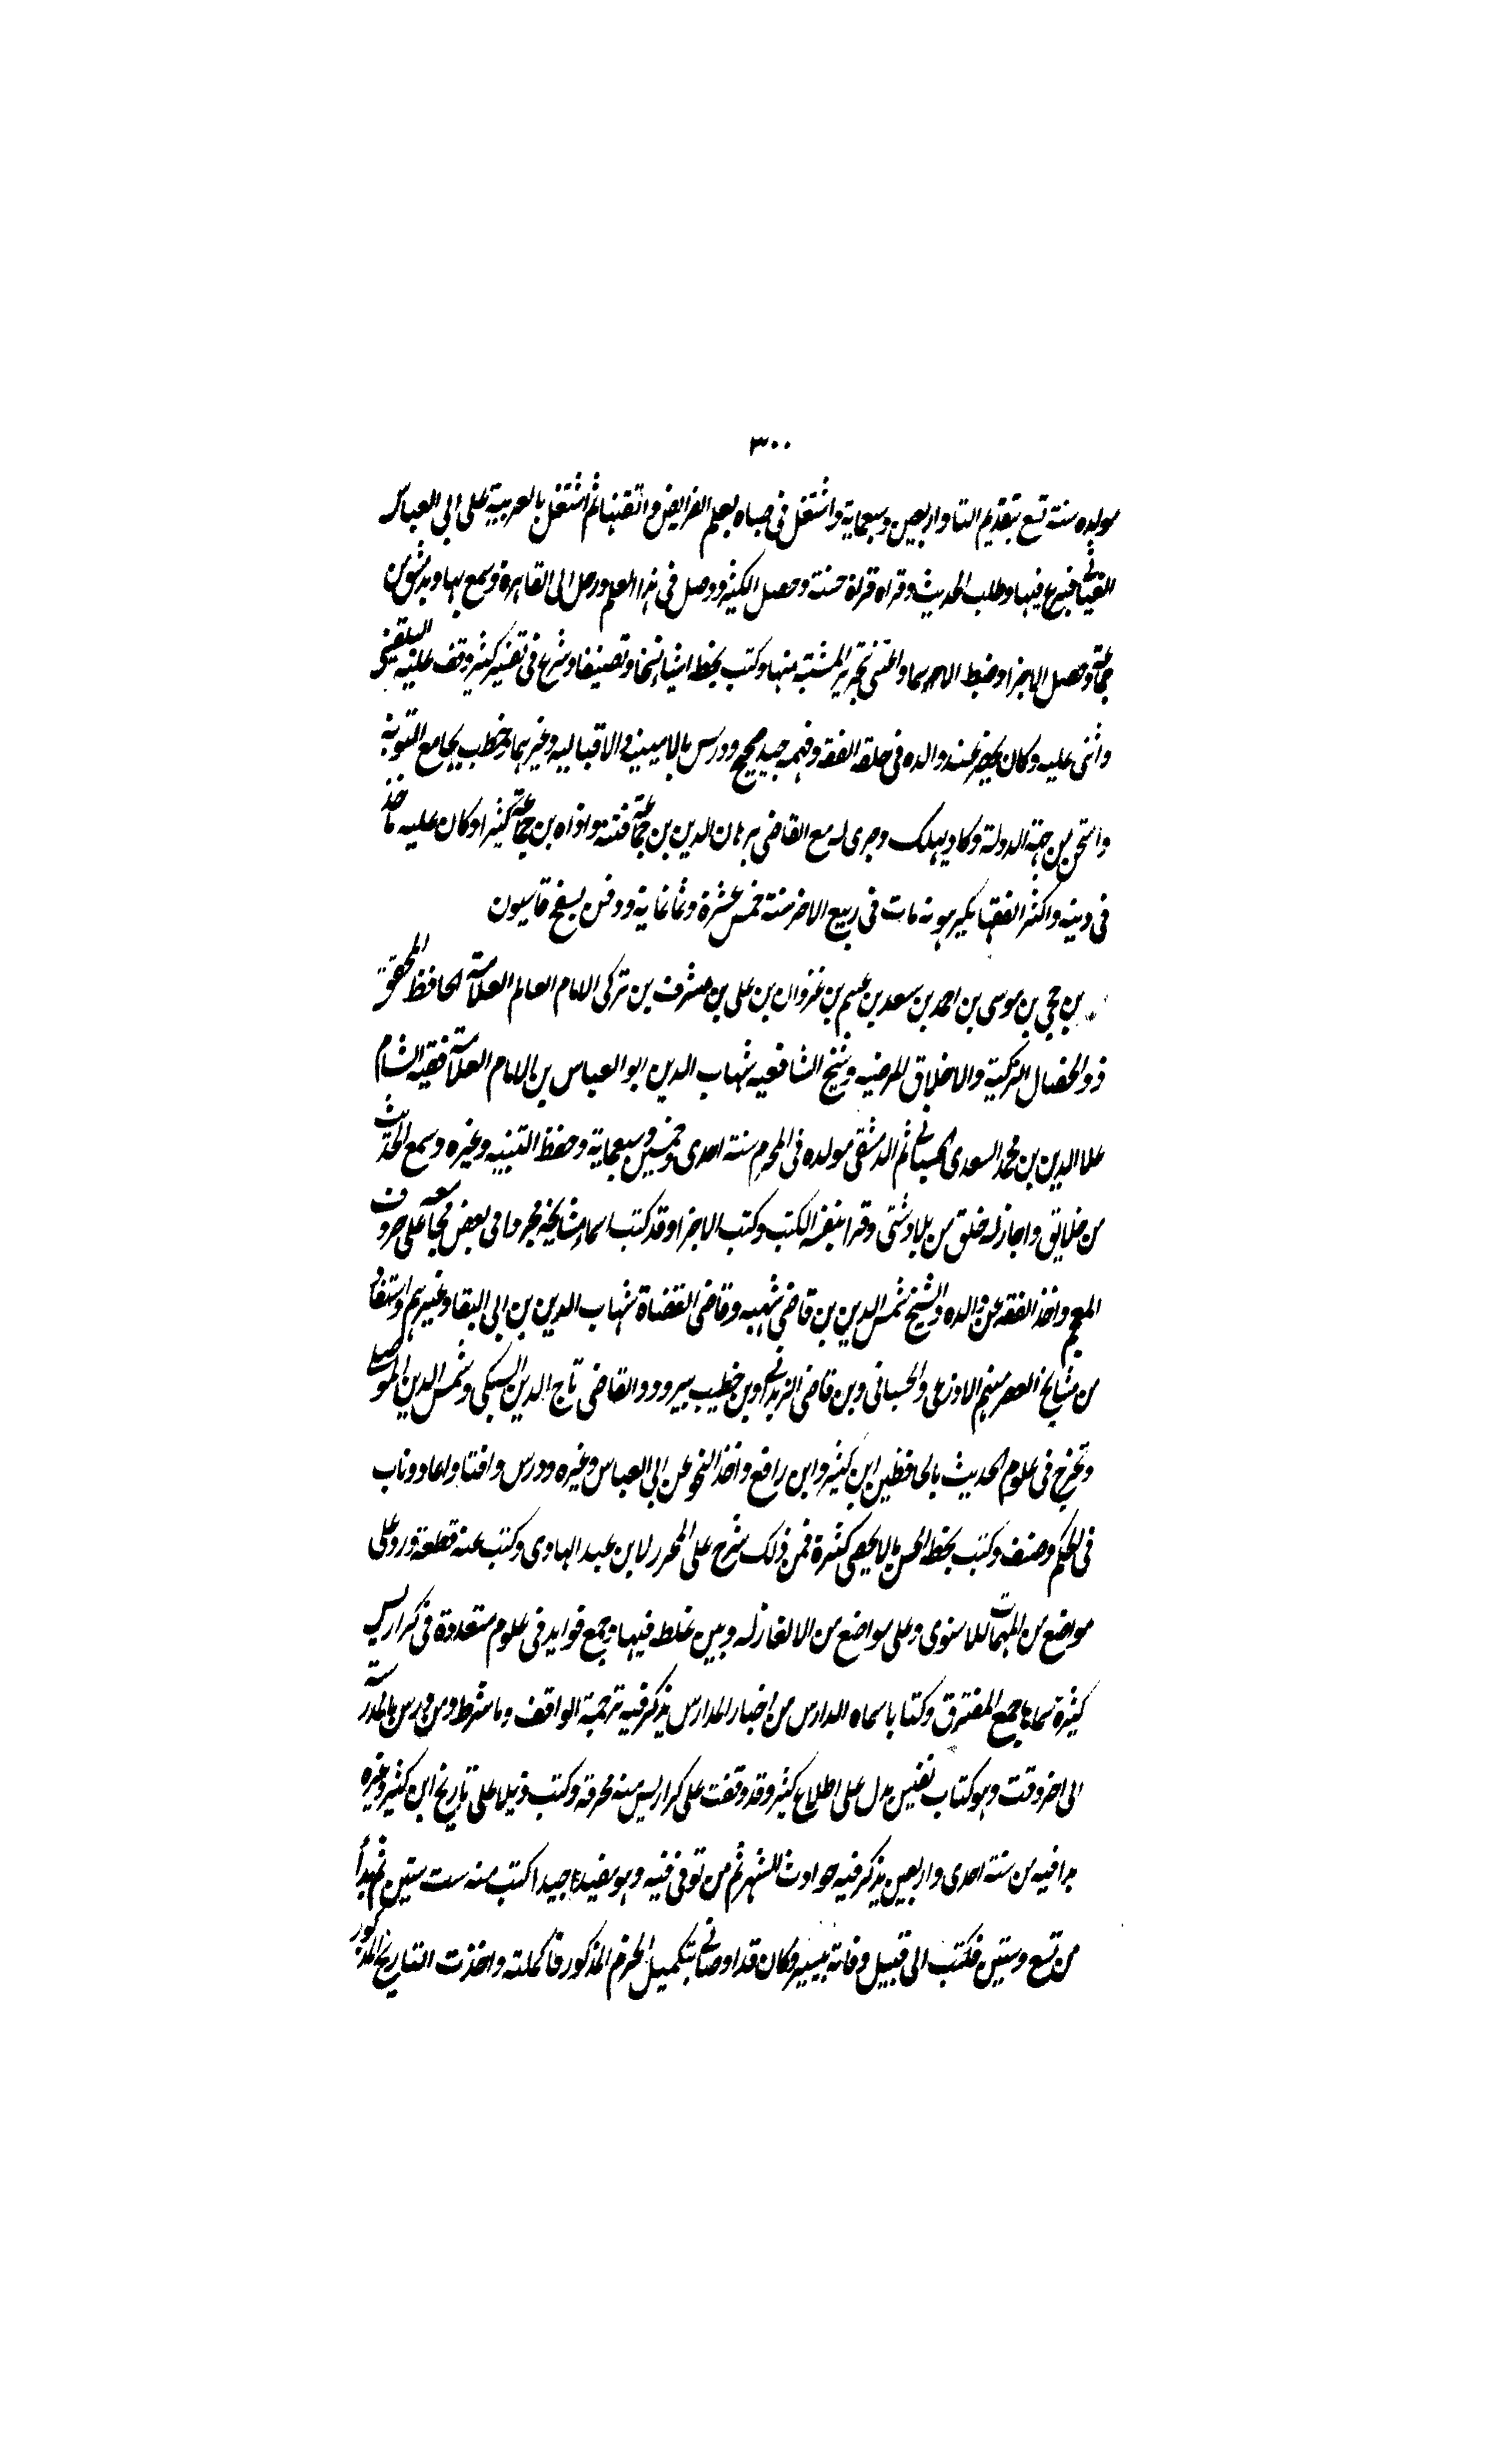 ٣٠٠
مولده سنة تسع بتقديم التا واربعين وسبعماية واشتغل فى صباه بعلم الفرايض واتقنها ثم اشتغل بالعربية على ابى العباس
فبرع فيها وطلب الحديث وقراه قراة حسنة وحصل الكثير ووصل فى هذا العلم ورحل الى القاهرة وسمع بها وبدمشق من
جماعة وحصل الاجزا وضبط الاسما واعتنى بتحرير المشتبه منها وكتب بخطه اشيا نسخا وتصنيفا وشرع فى تفسير كبير وقف عليه البلقينى
واثنى عليه وكان يحضر عند والده فى حلقة الفقه وفهمه جيد صحيح ودرس بالامينية والاقبالية وغيرهما وخطب بجامع التوبة
وامتحن من جهة الدولة وكاد يهلك وجرى له مع القاضى برهان الدين بن جماعة فتنة واذاه بن جماعة كثيرا وكان عليه ماخذ
فى دينه واكثر الفقها يكرهونه مات فى ربيع الاخر سنة خمس عشرة وثمانماية ودفن بسفح قاسيون
بن حجى بن موسى بن احمد بن سعد بن غشم بن غزوان بن على بن مشرف بن تركى الامام العالم العلامة الحافظ المحقق
ذو الخصال الزكية والاخلاق المرضيه وشيخ الشافعيه شهاب الدين ابو العباس بن الامام العلامة فقيه الشام
علا الدين بن محمد السعدى الحسبانى ثم الدمشقى مولده فى المحرم سنة احدى وخمسين وسبعماية وحفظ التنبيه وغيره وسمع الحديث
من خلايق واجاز له خلق من بلاد شتى وقرا بنفسه الكتب وكتب الاجزا وقد كتب اسماء مشايخه مجردا فى بعض مجاميعه على حروف
المعجم واخذ الفقه عن والده والشيخ شمس الدين بن قاضى شهبه وقاضى القضاة شهاب الدين بن ابى البقا وغيرهم واستفاد
من مشايخ العصر منهم الاوزعى والحسبانى وبن قاضى الزبدانى وبن خطيب يبرود والقاضى تاج الدين السبكى وشمس الدين الموصلى
وتخرج فى علوم الحديث بالحافظين ابن كثير وابن رافع واخذ النحو عن ابى العباس وغيره ودرس وافتا واعاد وناب
فى الحكم وصنف وكتب بخطه الحسن مالا يحصى كثرة فمن ذلك شرح على المحرر لابن عبد الهادى وكتب عنه قطعة ورد على
مواضع من المهمات للاسنوى وعلى مواضع من الالغاز له وبين غلطه فيها وجمع فوايد فى علوم متعددة فى كراريس
كثيرة سماها جمع المفترق وكتابا سماه الدارس من اخبار المدارس يذكر فيه ترجمة الواقف وما شرطه ومن درس بالمدرسة
الى اخر وقت وهو كتاب نفيس يدل على اطلاع كثير وقد وقفت على كراريس منه محرقة وكتب ذيلا على تاريخ ابن كثير وغيره
بدا فيه من سنة احدى واربعين يذكر فيه حوادث الشهر ثم من توفى فيه وهو مفيد جيدا كتب منه ست سنين ثم بدا
من تسع وستين فكتب الى قبيل وفاته بيسير وكان قد اوصانى بتكميل الخرم المذكور فاكملته واخذت التاريخ المذكور